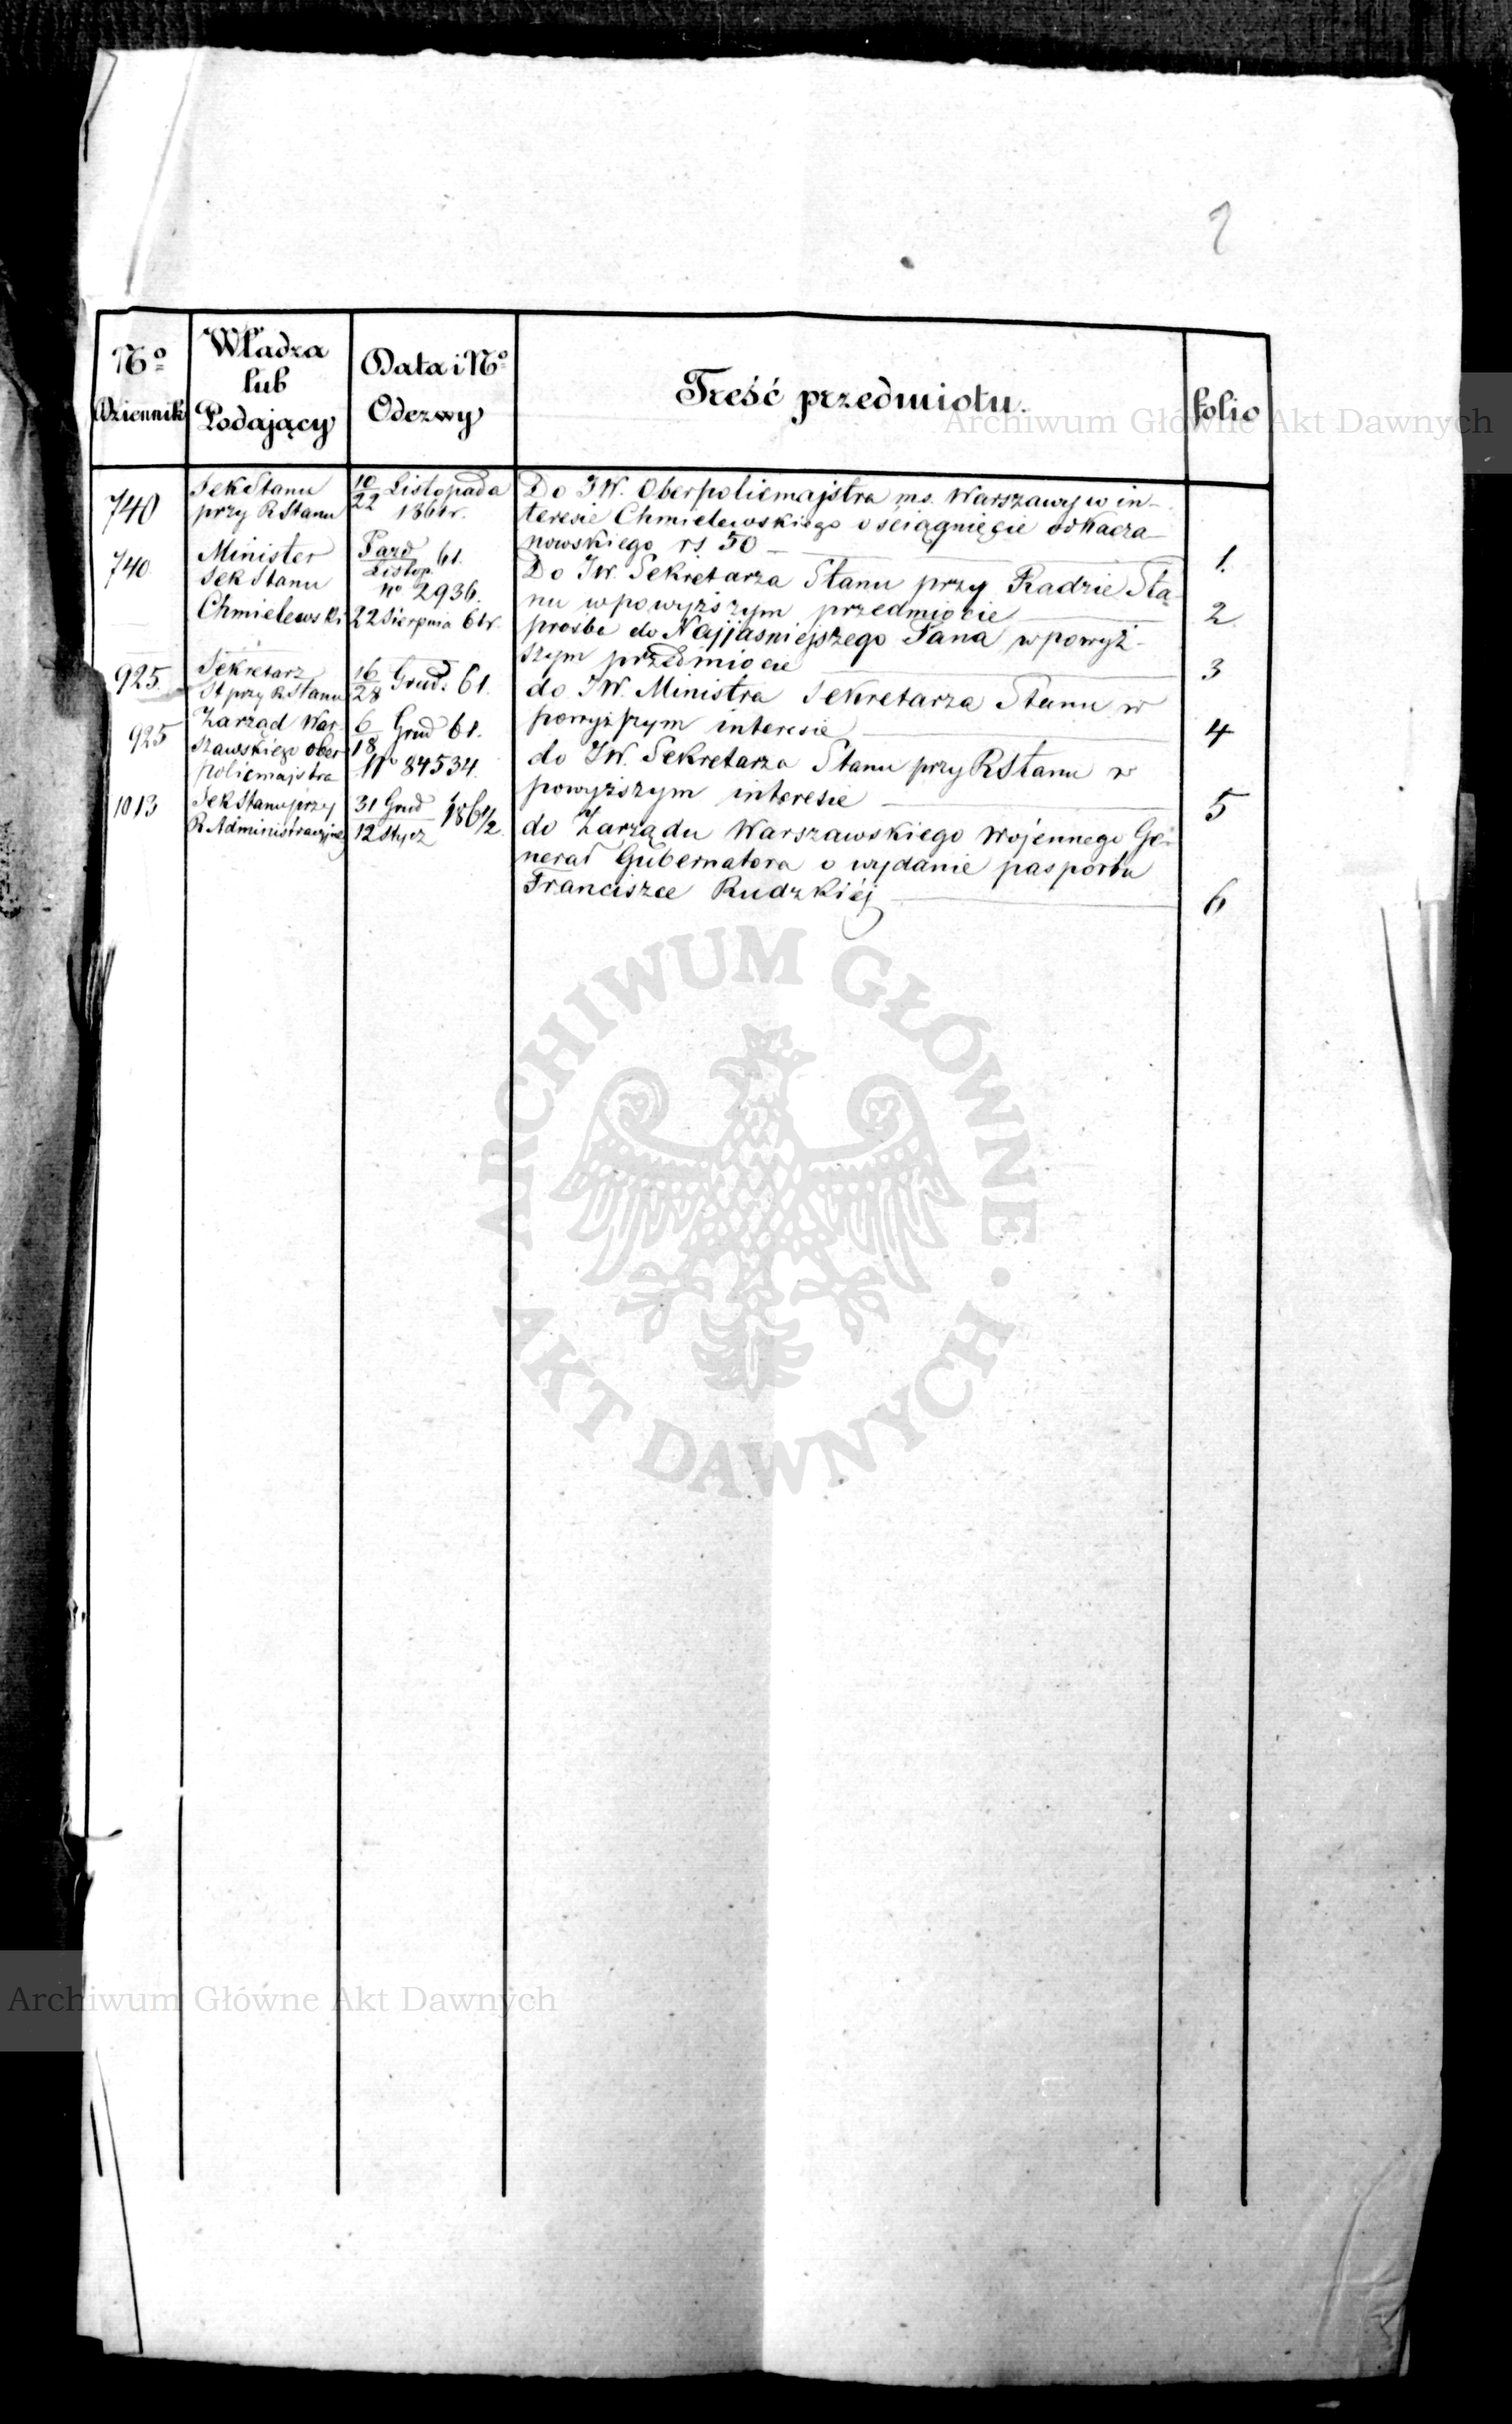 2
Nº Dziennik
Władza lub Podający
Data i Nº Odezwy
Treść przedmiotu.
folio
Archiwum Główne Akt Dawnych
740
Sek Stanu
przy R Stanu
10/22 Listopada
1861 r.
Do JW. Oberpolicmajstra ms. Warszawy w in-
teresie Chmielewskiego o ściągnięcie od Kacza-
nowskiego rs 50
1.
740.
Minister
Sek Stanu
Paźd/Listop 61.
Nº 2936.
Do JW. Sekretarza Stanu przy Radzie Sta-
nu w powyższym przedmiocie
2.
Chmielewski
22 Sierpnia 61 r.
prośba do Najjaśniejszego Pana w powyż-
szym przedmiocie
3
925.
Sekretarz
St przy R Stanu
16/28 Grud: 61.
do JW. Ministra Sekretarza Stanu w
powyższym interesie
4
925
Zarząd War-
szawskiego ober-
policmajstra
6/18 Grud 61.
Nº 84534.
do JW. Sekretarza Stanu przy R Stanu w
powyższym interesie
5
1013
Sek Stanu przy
R Administracyjnej
31 Grud/12 Stycz 1861/2.
do Zarządu Warszawskiego Wojennego Ge-
nerał Gubernatora o wydanie pasportu
Franciszce Rudzkiéj
6
ARCHIWUM GŁÓWNE · AKT DAWNYCH ·
Archiwum Główne Akt Dawnych